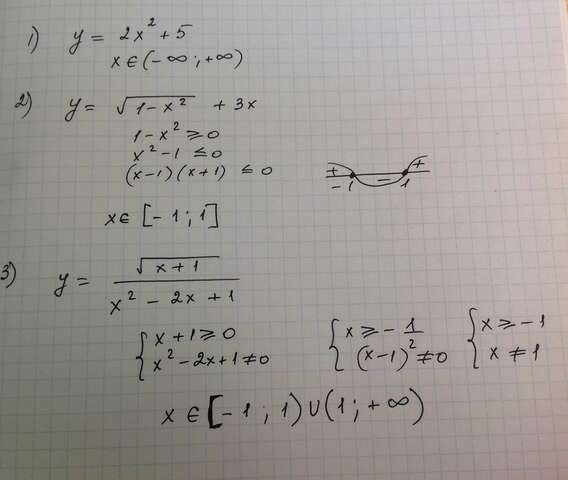 1) y = 2x² + 5
x ∈ (-∞ ; +∞)
2) y = √(1 - x²) + 3x
1 - x² ≥ 0
x² - 1 ≤ 0
(x-1)(x+1) ≤ 0
+ - +
-1 1
x ∈ [-1 ; 1]
3) y = √(x+1) / (x² - 2x + 1)
{ x + 1 ≥ 0 { x ≥ -1 { x ≥ -1
{ x² - 2x + 1 ≠ 0 { (x-1)² ≠ 0 { x ≠ 1
x ∈ [-1 ; 1) ∪ (1 ; +∞)